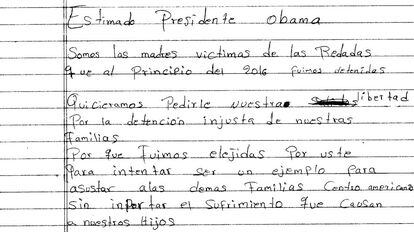 Estimado Presidente Obama
Somos las madres victimas de las Redadas
que al Principio del 2016 fuimos detenidas
Quicieramos Pedirle nuestra libertad
Por la detencion injusta de nuestras
familias
Por que Fuimos elejidas Por uste
Para intentar ser un ejemplo Para
asustar alas demas Familias Centro americana
sin inportar el Sufrimiento que Causan
a nuestros Hijos